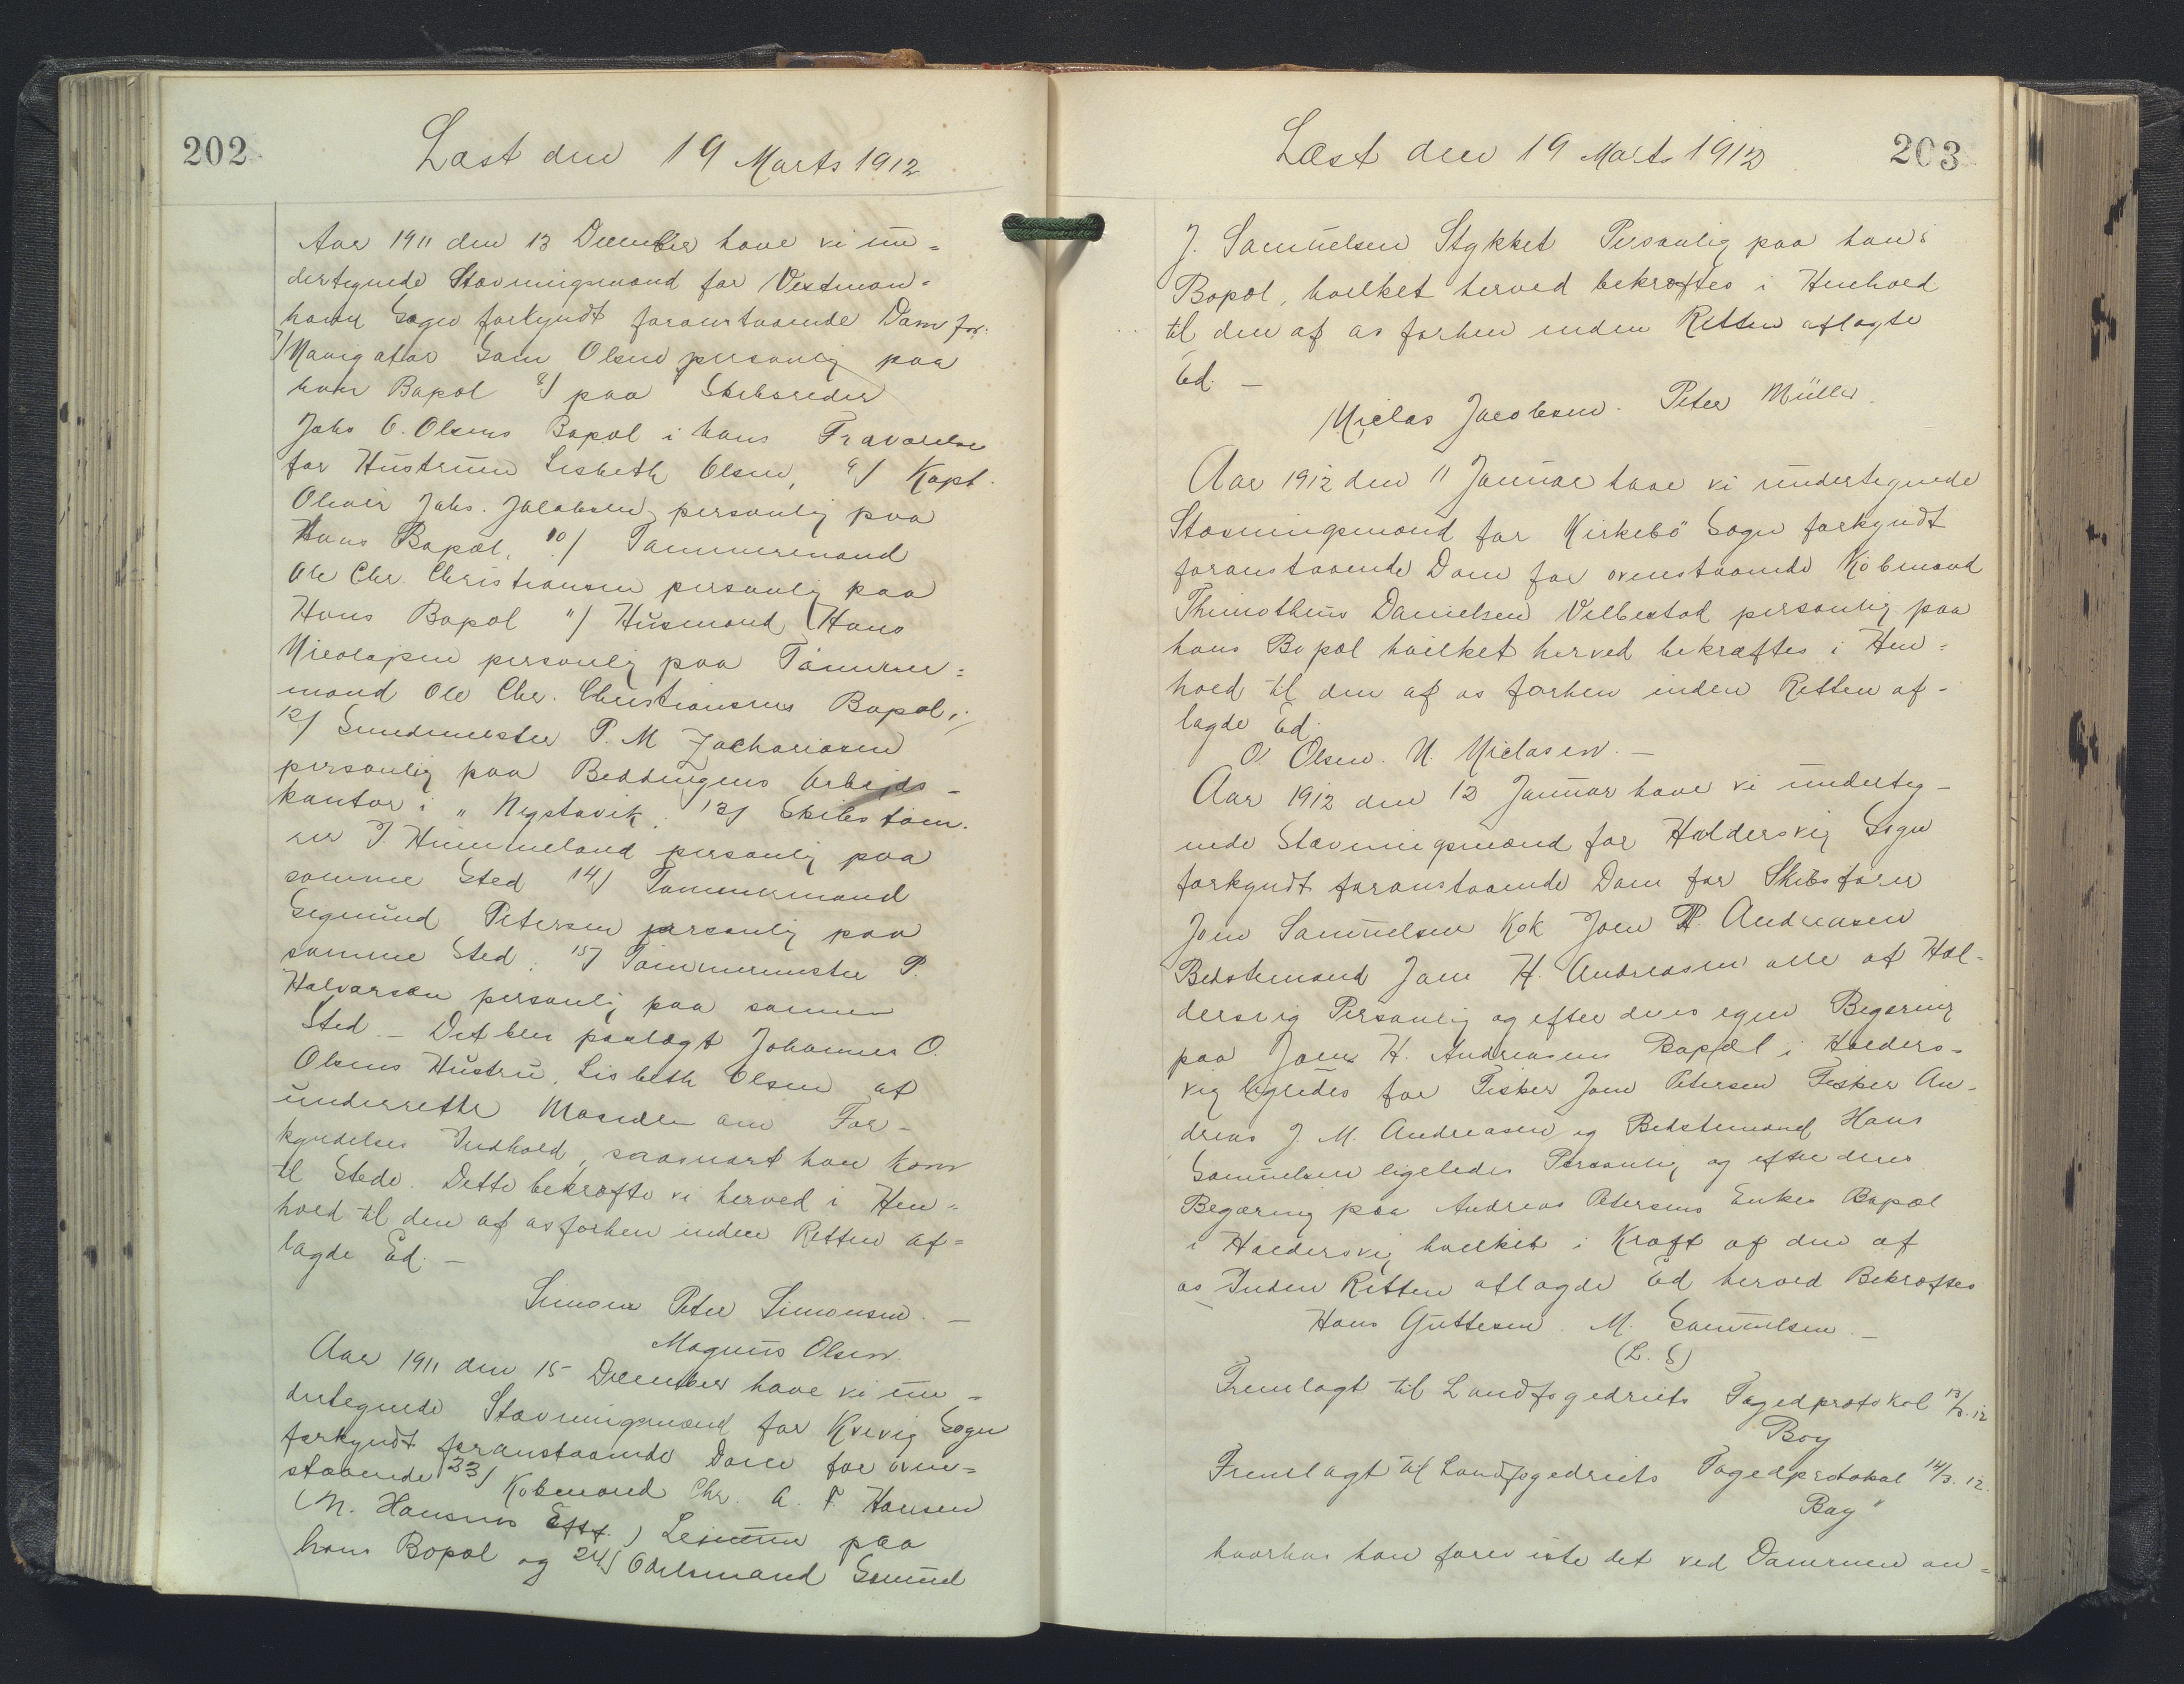 202
Læst den 19 Marts 1912
Aar 1911 den 13 December have vi un=
dertegnede Stævningsmænd for Vestman-
havn Sogn forkyndt foranstaaende Dom for:
7/ Navigatør Sam Olsen personlig paa
hans Bopæl 8/ paa Skibsreder
Johs O. Olsens Bopæl i hans Fraværelse
for Hustruen Lisbeth Olsen, 9/ Kapt.
Oliver Johs. Jacobsen personlig paa
Hans Bopæl, 10/ Tømmermand
Ole Chr. Christiansen personlig paa
Hans Bopæl 11/ Husmand Hans
Nicolajsen personlig paa Tømmer=
mand Ole Chr. Christiansens Bopæl;
12/ Smedemester P. M Zachariasen
personlig paa Beddingens Arbejds-
kontor i „Nystavik; 13/ Skibstøm.
rer J. Himmeland personlig paa
samme Sted 14/ Tømmermand
Segmund Petersen personlig paa
samme Sted; 15/ Tømmermester P.
Halvorsen personlig paa samme
Sted. – Det blev paalagt Johannes O.
Olsens Hustru, Lisbeth Olsen at
underrette Manden om For-
kyndelses Indhold, saasnart han kom
til Stede. Dette bekræfte vi herved i Hen=
hold til den af os forhen inden Retten af=
lagde Ed. –
Simon Peter Simonsen. –
Magnus Olsen.
Aar 1911 den 15 December have vi un-
dertegnede Stævningsmænd for Kvivig Sogn
forkyndt foranstaaende Dom for oven=
staaende 23/ Købmand Chr. A. F. Hansen
(N. Hansens Eftf.) Leinum paa
hans Bopæl og 24/ Odelsmand Samuel
203
Læst den 19 Marts 1912
J. Samuelsen Stykket Personlig paa hans
Bopæl, hvilket herved bekræftes i Henhold
til den af os forhen inden Retten aflagte
Ed. –
Niclas Jacobsen. Peter Müller.
Aar 1912 den 11 Januar have vi undertegnede
Stævningsmænd for Kirkebö Sogn forkyndt
foranstaaende Dom for ovenstaaende Købmand
Thimotheus Danielsen Velbestad personlig paa
hans Bopæl hvilket herved bekræftes i Hen=
hold til den af os forhen inden Retten af-
lagde Ed.
O. Olsen. N. Niclasen. –
Aar 1912 den 13 Januar have vi underteg-
nede Stævningsmænd for Haldersvig Sogn
forkyndt foranstaaende Dom for Skibsfører
Joen Samuelsen Kok Joen P. Andreasen
Bedstemand Joen H. Andreasen alle af Hal-
dersvig Personlig og efter deres egen Begæring
paa Joen H. Andreasens Bopæl i Halders-
vig ligeledes for Fisker Joen Petersen Fisker An-
dreas J. M. Andreasen og Bedstemand Hans
Samuelsen ligeledes Personlig og efter deres
Begæring paa Andreas Petersens Enkes Bopæl
i Haldersvig hvilket i Kraft af den af
os Inden Retten aflagde Ed herved Bekræftes
Hans Guttesen. M. Samuelsen. –
(L. S)
Fremlagt til Landfogedriets Fogedprotokol 13/3. 12
Boy
Fremlagt til Landfogedriets Fogedprotokol 14/3. 12.
Bøy"
hvorhos han foreviste det ved Dommen an=